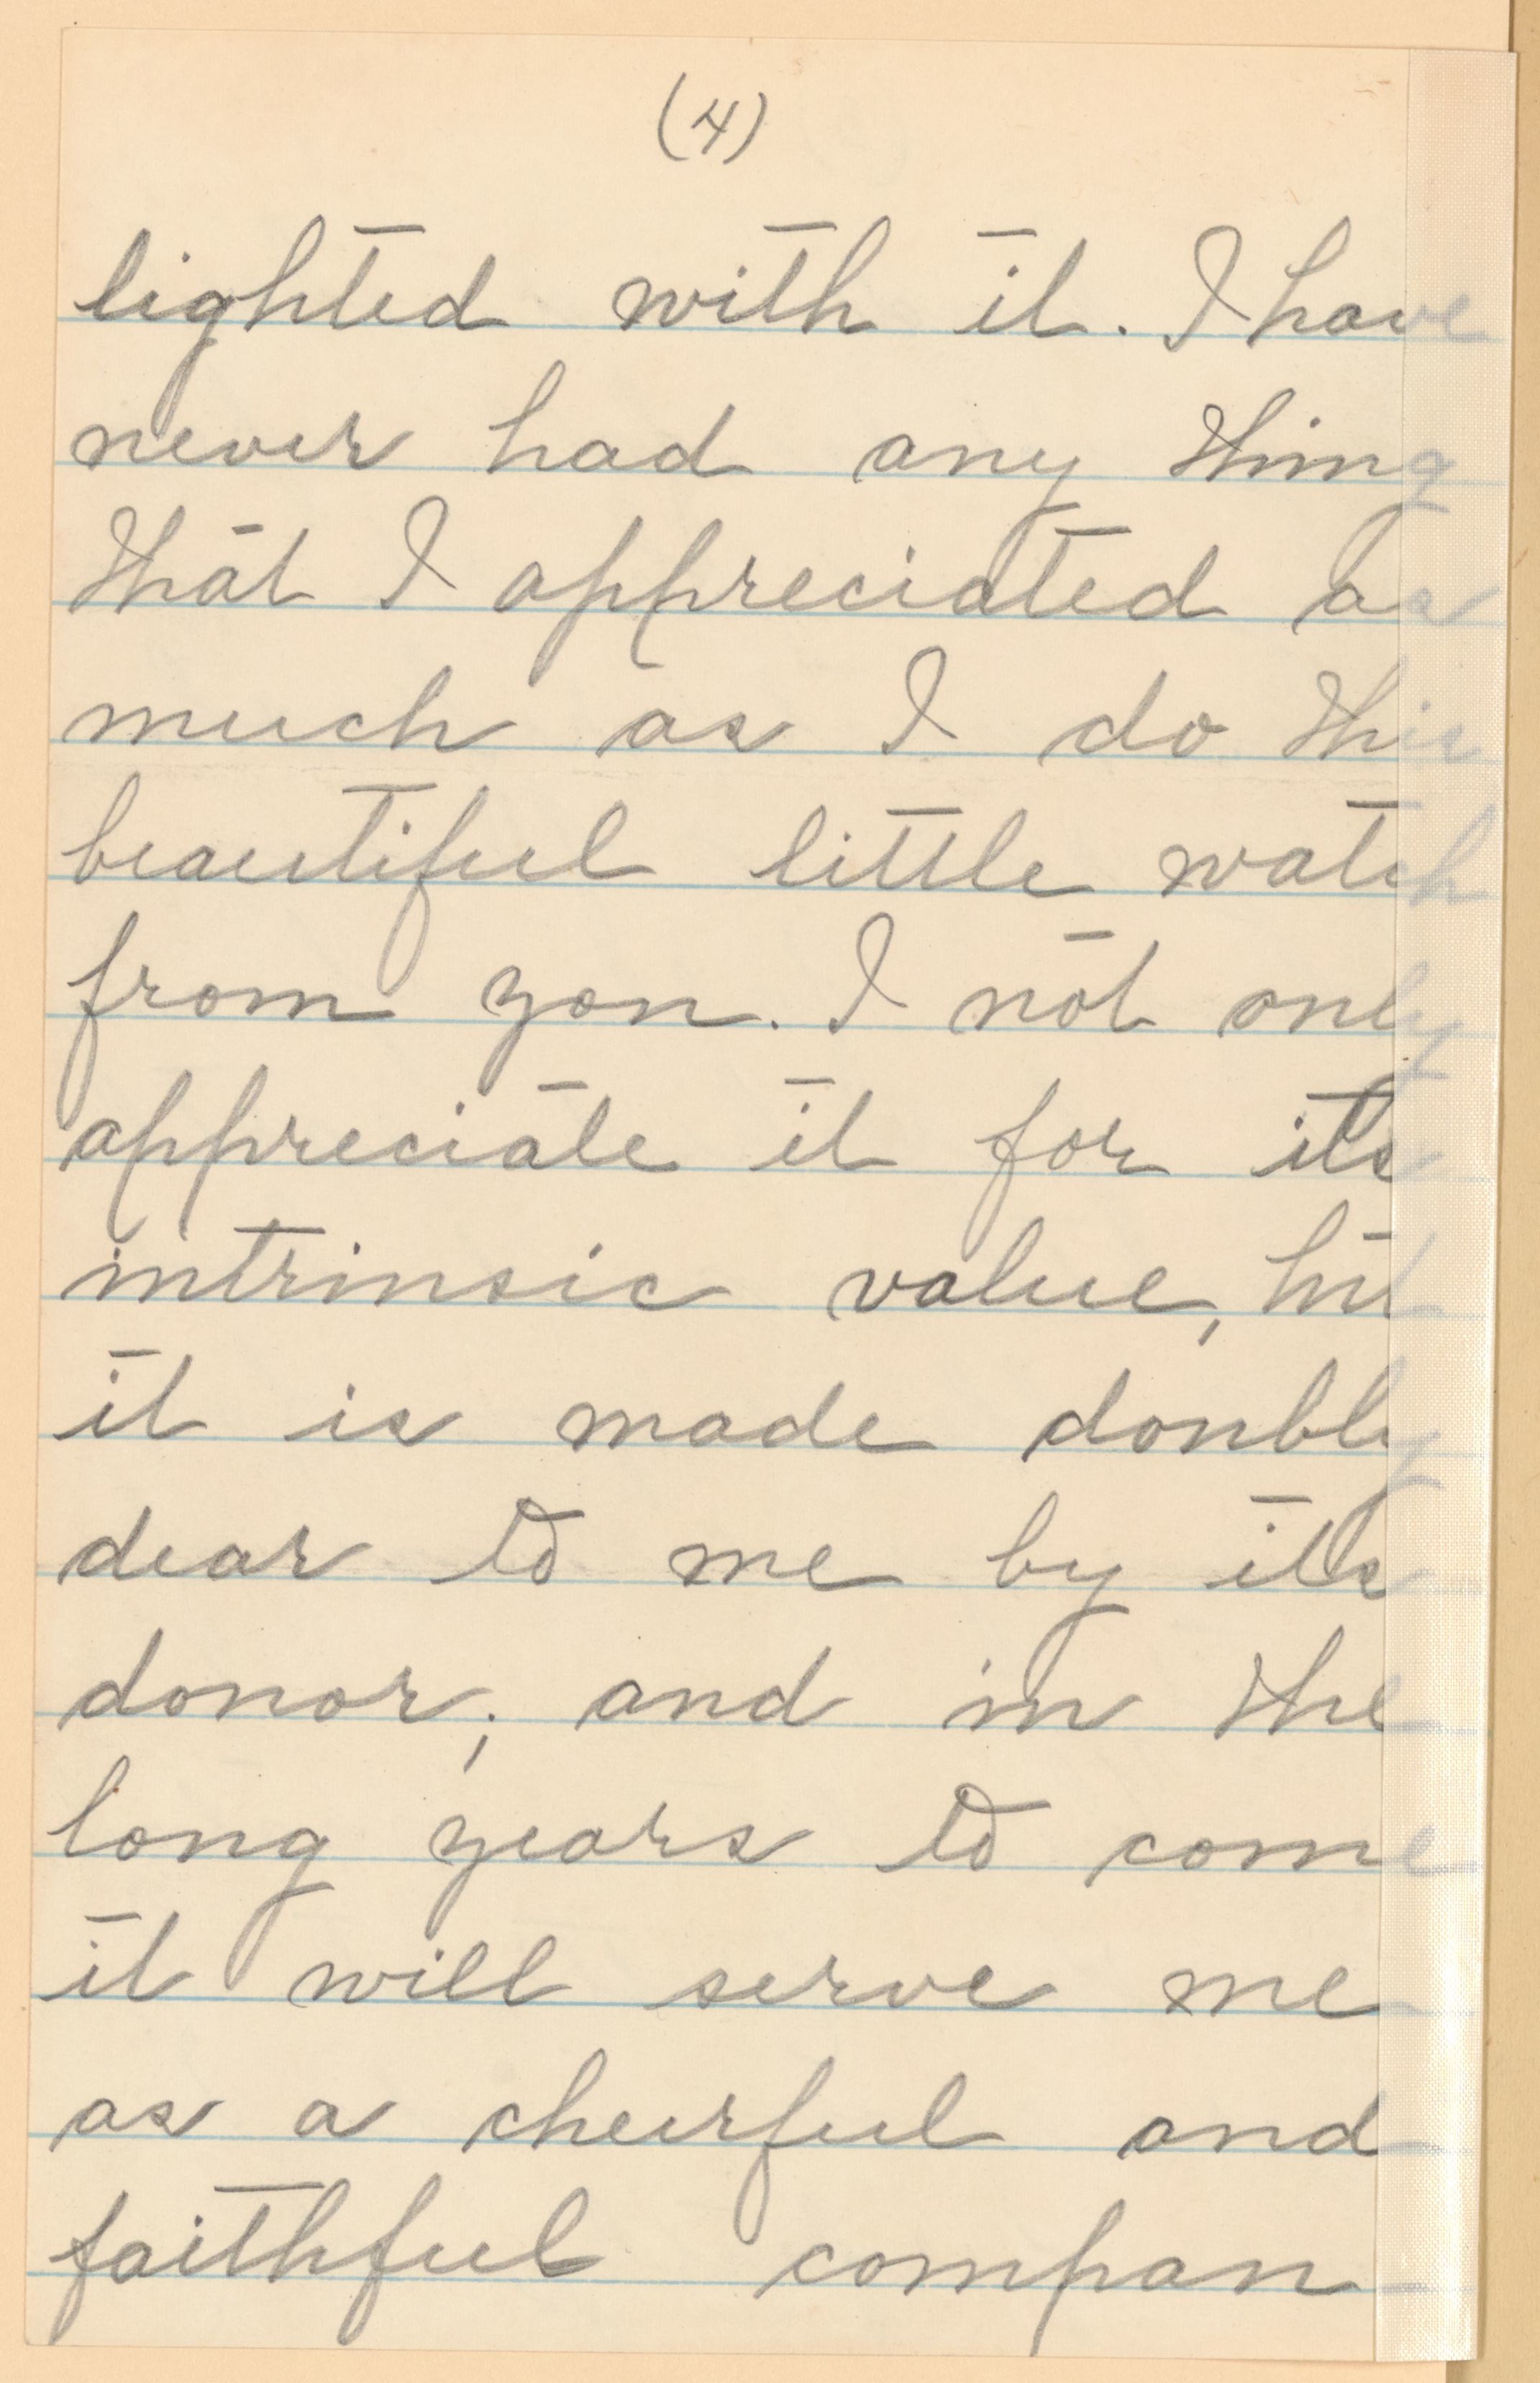 (4)
lighted with it. I have
never had any thing
that I appreciated as
much as I do this
beautiful little watch
from you. I not only
appreciate it for its
intrinsic value, but
it is made doubly
dear to me by its
donor; and in the
long years to come
it will serve me
as a cheerful and
faithful compan-